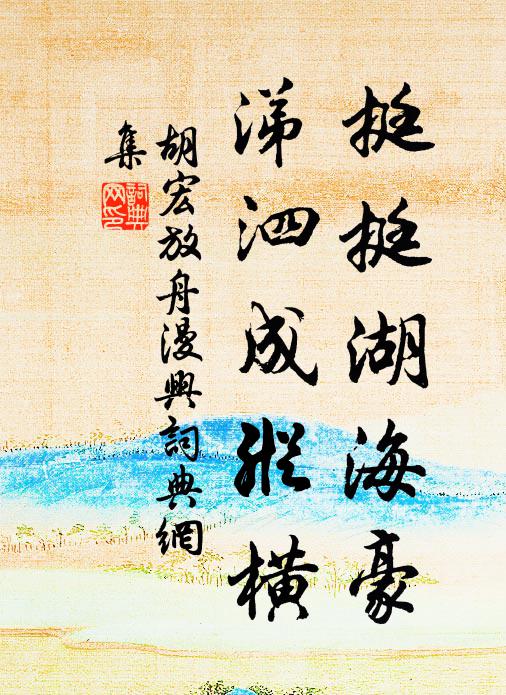 挺挺湖海豪
涕泗成縱橫
胡宏放舟漫興詞典網
集
詞典網印